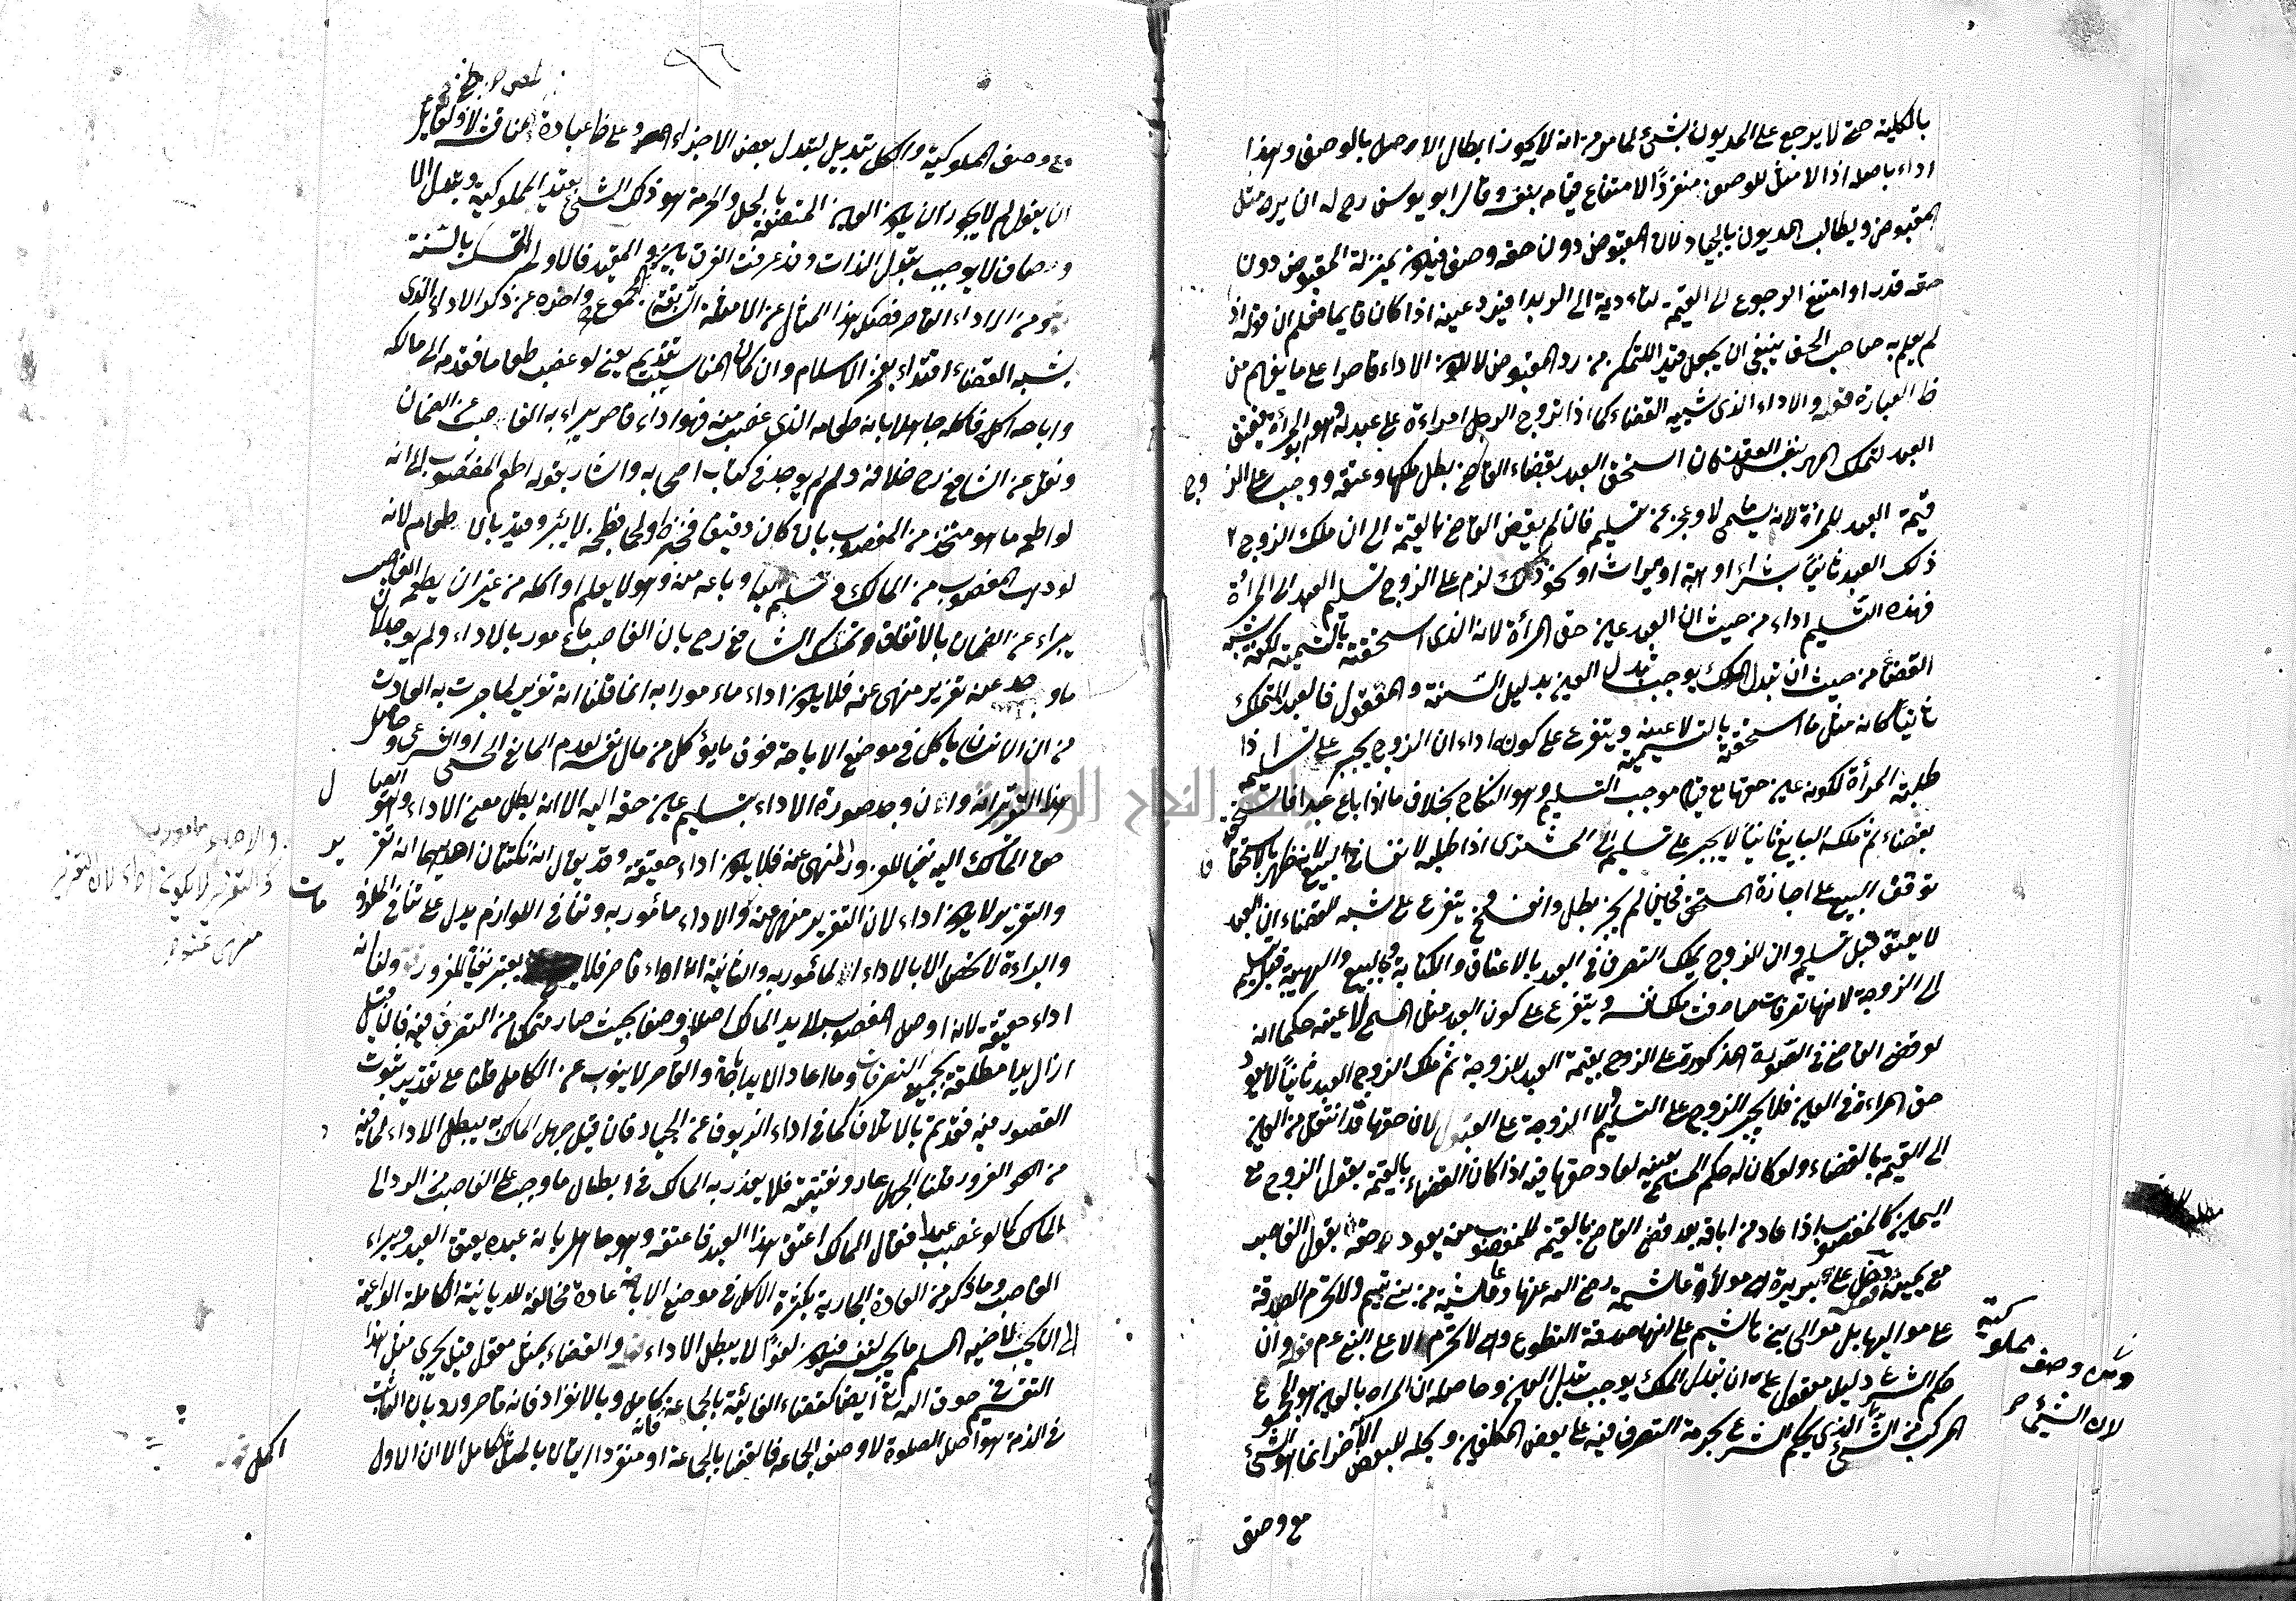 بالكلية حتى لا يرجع على المديون بشئ لما مر من انه لا يجوز ابطال الاصل بالوصف وهذا
اداء باصله اذ لا مثل للوصف منفردًا لامتناع قيامه بنفسه وقال ابو يوسف رح له ان يرد مثل
المقبوض ويطالب المديون بالجياد لان المقبوض دون حقه وصفا فيكون بمنزلة المقبوض دون
حقه قدرا وامتنع الرجوع الى القيمة لتاديه الى الربوا فيرد عينه اذا كان قايما فعلم ان قوله اذا
لم يعلم به صاحب الحق ينبغي ان يجعل قيد التمكن من رد المقبوض لا لكون الاداء قاصرا على ما يفهم من
ظ العبارة قوله والاداء الذى يشبه القضاء كما اذا تزوج الرجل امراءة على عبد له وهو ابو المرأة فيعتق
العبد لتملك المهر بنفس العقد فان استحق العبد بقضاء القاضي بطل ملكها وعتقه ووجب على الزوج
قيمة العبد للمرأة لانه سمى مالا وعجز عن تسليمه فان لم يقض القاضي بالقيمة الى ان ملك الزوج
ذلك العبد ثانيًا بشراء او هبة او ميراث او نحو ذلك لزم على الزوج تسليم العبد الى المرأة
فهذه التسليم اداء من حيث ان العبد عين حق المرأة لانه الذى استحقته بالتسمية لكنه يشبه
القضاء من حيث ان تبدل الملك يوجب تبدل العين بدليل السنة والمعقول فالعبد المتملك
ثانيًا كانه مثل ما استحقته بالتسمية لا عينه ويتفرع على كونه اداء ان الزوج يجبر على تسليمه اذا
طلبته المرأة لكونه عين حقها مع قيام موجب التسليم وهو النكاح بخلاف ما اذا باع عبدا فاستحق
بقضاء ثم ملكه البايع ثانيًا لا يجبر على تسليمه الى المشترى اذا طلبه لانفساخ البيع لانه ظهر بالاستحقاق
توقف البيع على اجازة المستحق فحين لم يجز بطل وانفسخ ويتفرع على شبه القضاء ان العبد
لا يعتق قبل تسليمه وان الزوج يملك التصرف في العبد بالاعتاق والكتابة والبيع والهبة قبل تسليمه
الى الزوجة لانها تصرفات صادفت ملك نفسه ويتفرع على كون العبد مثل المسمى لا عينه حكما انه
لو قضى القاضي في الصورة المذكورة على الزوج بقيمة العبد للزوجة ثم ملك الزوج العبد ثانيًا لا يعود
حق المراءة في العين فلا يجبر الزوج على التسليم ولا الزوجة على القبول لان حقها قد انتقل من العين
الى القيمة بالقضاء ولو كان له حكم المسمى بعينه لعاد حقها فيه اذا كان القضاء بالقيمة بقول الزوج مع
اليمين كالمغصوب اذا عاد من اباقه بعد قضى القاضي بالقيمة للمغصوب منه يعود حقه بقول الغاصب
مع يمينه قوله دخل على بريرة هى مولاة عائشة رضى الله عنها وعائشة من بنى تيم ولا تحرم الصدقة
على مواليها بل موالى بنى هاشم على انها صدقة التطوع وهى لا تحرم الا على النبى عم قوله وان
حكم الشرع دليل معقول على ان تبدل الملك يوجب تبدل العين وحاصله ان المراد بالعين هو المجموع
المركب من الشئ الذى يحكم الشرع بحرمة التصرف فيه على بعض المكلفين وبحله للبعض الآخر انما هو الشئ
مع وصف
مملوكية
وصف
لان الشئ
٩٦
مع وصف المملوكية والكل يتبدل بتبدل بعض الاجزاء وعلى ظ عبارة المص مناقشة لان لقائل
ان يقول لم لا يجوز ان يكون العين المتصف بالحل والحرمة هو ذلك الشئ بقيد المملوكية وتبدل
الاوصاف لا يوجب تبدل الذات وقد عرفت الفرق بين المجموع والمقيد فالاولى التمسك بالسنة
قوله ومن الاداء القاصر فصل هذا المثال عن الامثلة السابقة واخره عن ذكر الاداء الذى
يشبه القضاء اقتداء بفخر الاسلام وان كان المناسب تقديمه يعنى لو غصب طعاما فقدمه الى مالكه
واباحه اكله فاكله جاهلا بانه طعامه الذى غصب منه فهو اداء قاصر يبراء به الغاصب عن الضمان
ونقل عن الشافعى رح خلافه ولم يوجد في كتاب اصحابه واشار بقوله اطعم المغصوب الى انه
لو اطعم ما هو متخذ من المغصوب بان كان دقيقا فخبزه او لحما فطبخه لا يبرء وقيد بالاطعام لانه
لو وهب المغصوب من المالك وسلمه اليه او باعه منه وهو لا يعلم او اكله من غير ان يطعمه الغاصب
يبراء عن الضمان بالاتفاق وتمسك الشافعى رح بان الغاصب ماءمور بالاداء ولم يوجد لان
ما وجد عنه تغرير منهى عنه فلا يكون اداء ماءمورا به انما قلنا انه تغرير لما جرت به العادة
من ان الانسان ياكل في موضع الاباحة فوق ما يأكل من مال نفسه لعدم المانع الحسى او الشرعى وحاصل
هذا التقرير انه وان وجد صورة الاداء بتسليم عين حقه اليه الا انه بطل معنى الاداء
حق المالك اليه نفيا للغرور المنهى عنه فلا يكون اداء حقيقة وقد يقال انه نكتتان احديهما انه تغرير
والتغرير لا يكون اداء لان التغرير منهى عنه والاداء مأمور به وتنافى اللوازم يدل على تنافى الملزومات
والبراءة لا تحصل الا بالاداء المأمور به والثانية انه اداء قاصر فلا يعتبر نفيا للغرور ولنا انه
اداء حقيقة لانه اوصل المغصوب الى يد المالك اصلا ووصفا بحيث صار متمكنا من التصرف فيه فان قيل
ازال يدا مطلقة بجميع التصرفات وما اعاد الا يد اباحة والقاصر لا ينوب عن الكامل قلنا على تقدير ثبوت
القصور فيه فقد تم بالاتلاف كما في اداء الزيوف عن الجياد فان قيل جهل المالك به يبطل الاداء لما فيه
من الغرور قلنا الجهل عار ونقيصة فلا يعذر به المالك في ابطال ما وجب على الغاصب من الرد الى
المالك كما لو غصب عبدا فقال المالك اعتق هذا العبد فاعتقه وهو جاهل بانه عبده يعتق العبد ويبراء
الغاصب وما ذكر من العادة الجارية بكثرة الاكل في موضع الاباحة عادة مخالفة للديانة الكاملة الداعية
الى ان يحب لاخيه المسلم ما يحب لنفسه فيكون لغوًا لا يبطل الاداء قوله والقضاء بمثل معقول قيل يجرى مثل هذا
التقسيم في حقوق الله تعالى ايضا كقضاء الفائتة بالجماعة فانه كامل وبالانفراد فانه قاصر ورد بان الثابت
في الذمة هو اصل الصلوة لا وصف الجماعة فالقضاء بالجماعة او منفردا اتيان بالمثل الكامل الا ان الاول
اكمل
والتغرير لا يكون اداء لان التغرير
منهى عنه